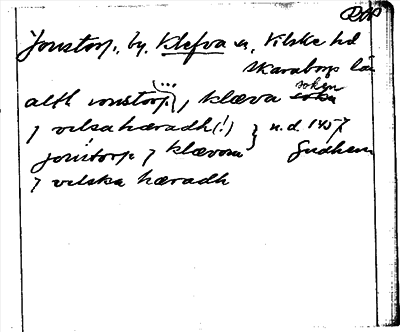 DAP
Jonstorp, by, Klefva sn, Vilske hd
Skaraborgs län
allt ionstorp, i klæva soken
i vilsa hæradh (!) } n.d. 1457
jonstorp i klæwom } Gudhem
i vilska hæradh